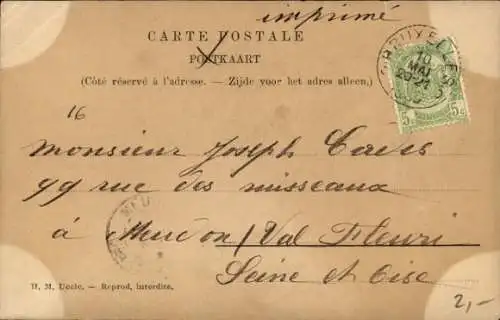 imprimé
CARTE POSTALE
POSTKAART
(Côté réservé à l'adresse. — Zijde voor het adres alleen.)
BRUXELLES
10
MAI
20-21
5c 5c
16
Monsieur Joseph
99 rue des ruisseaux
à Meudon / Val Fleuri
Seine et Oise
H. M. Uccle. — Reprod. interdite.
2,-